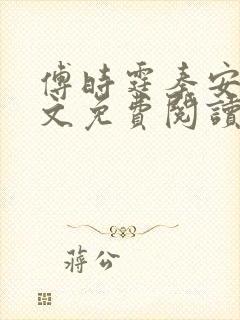 傅時霆秦安
文免費閱讀
蔣公